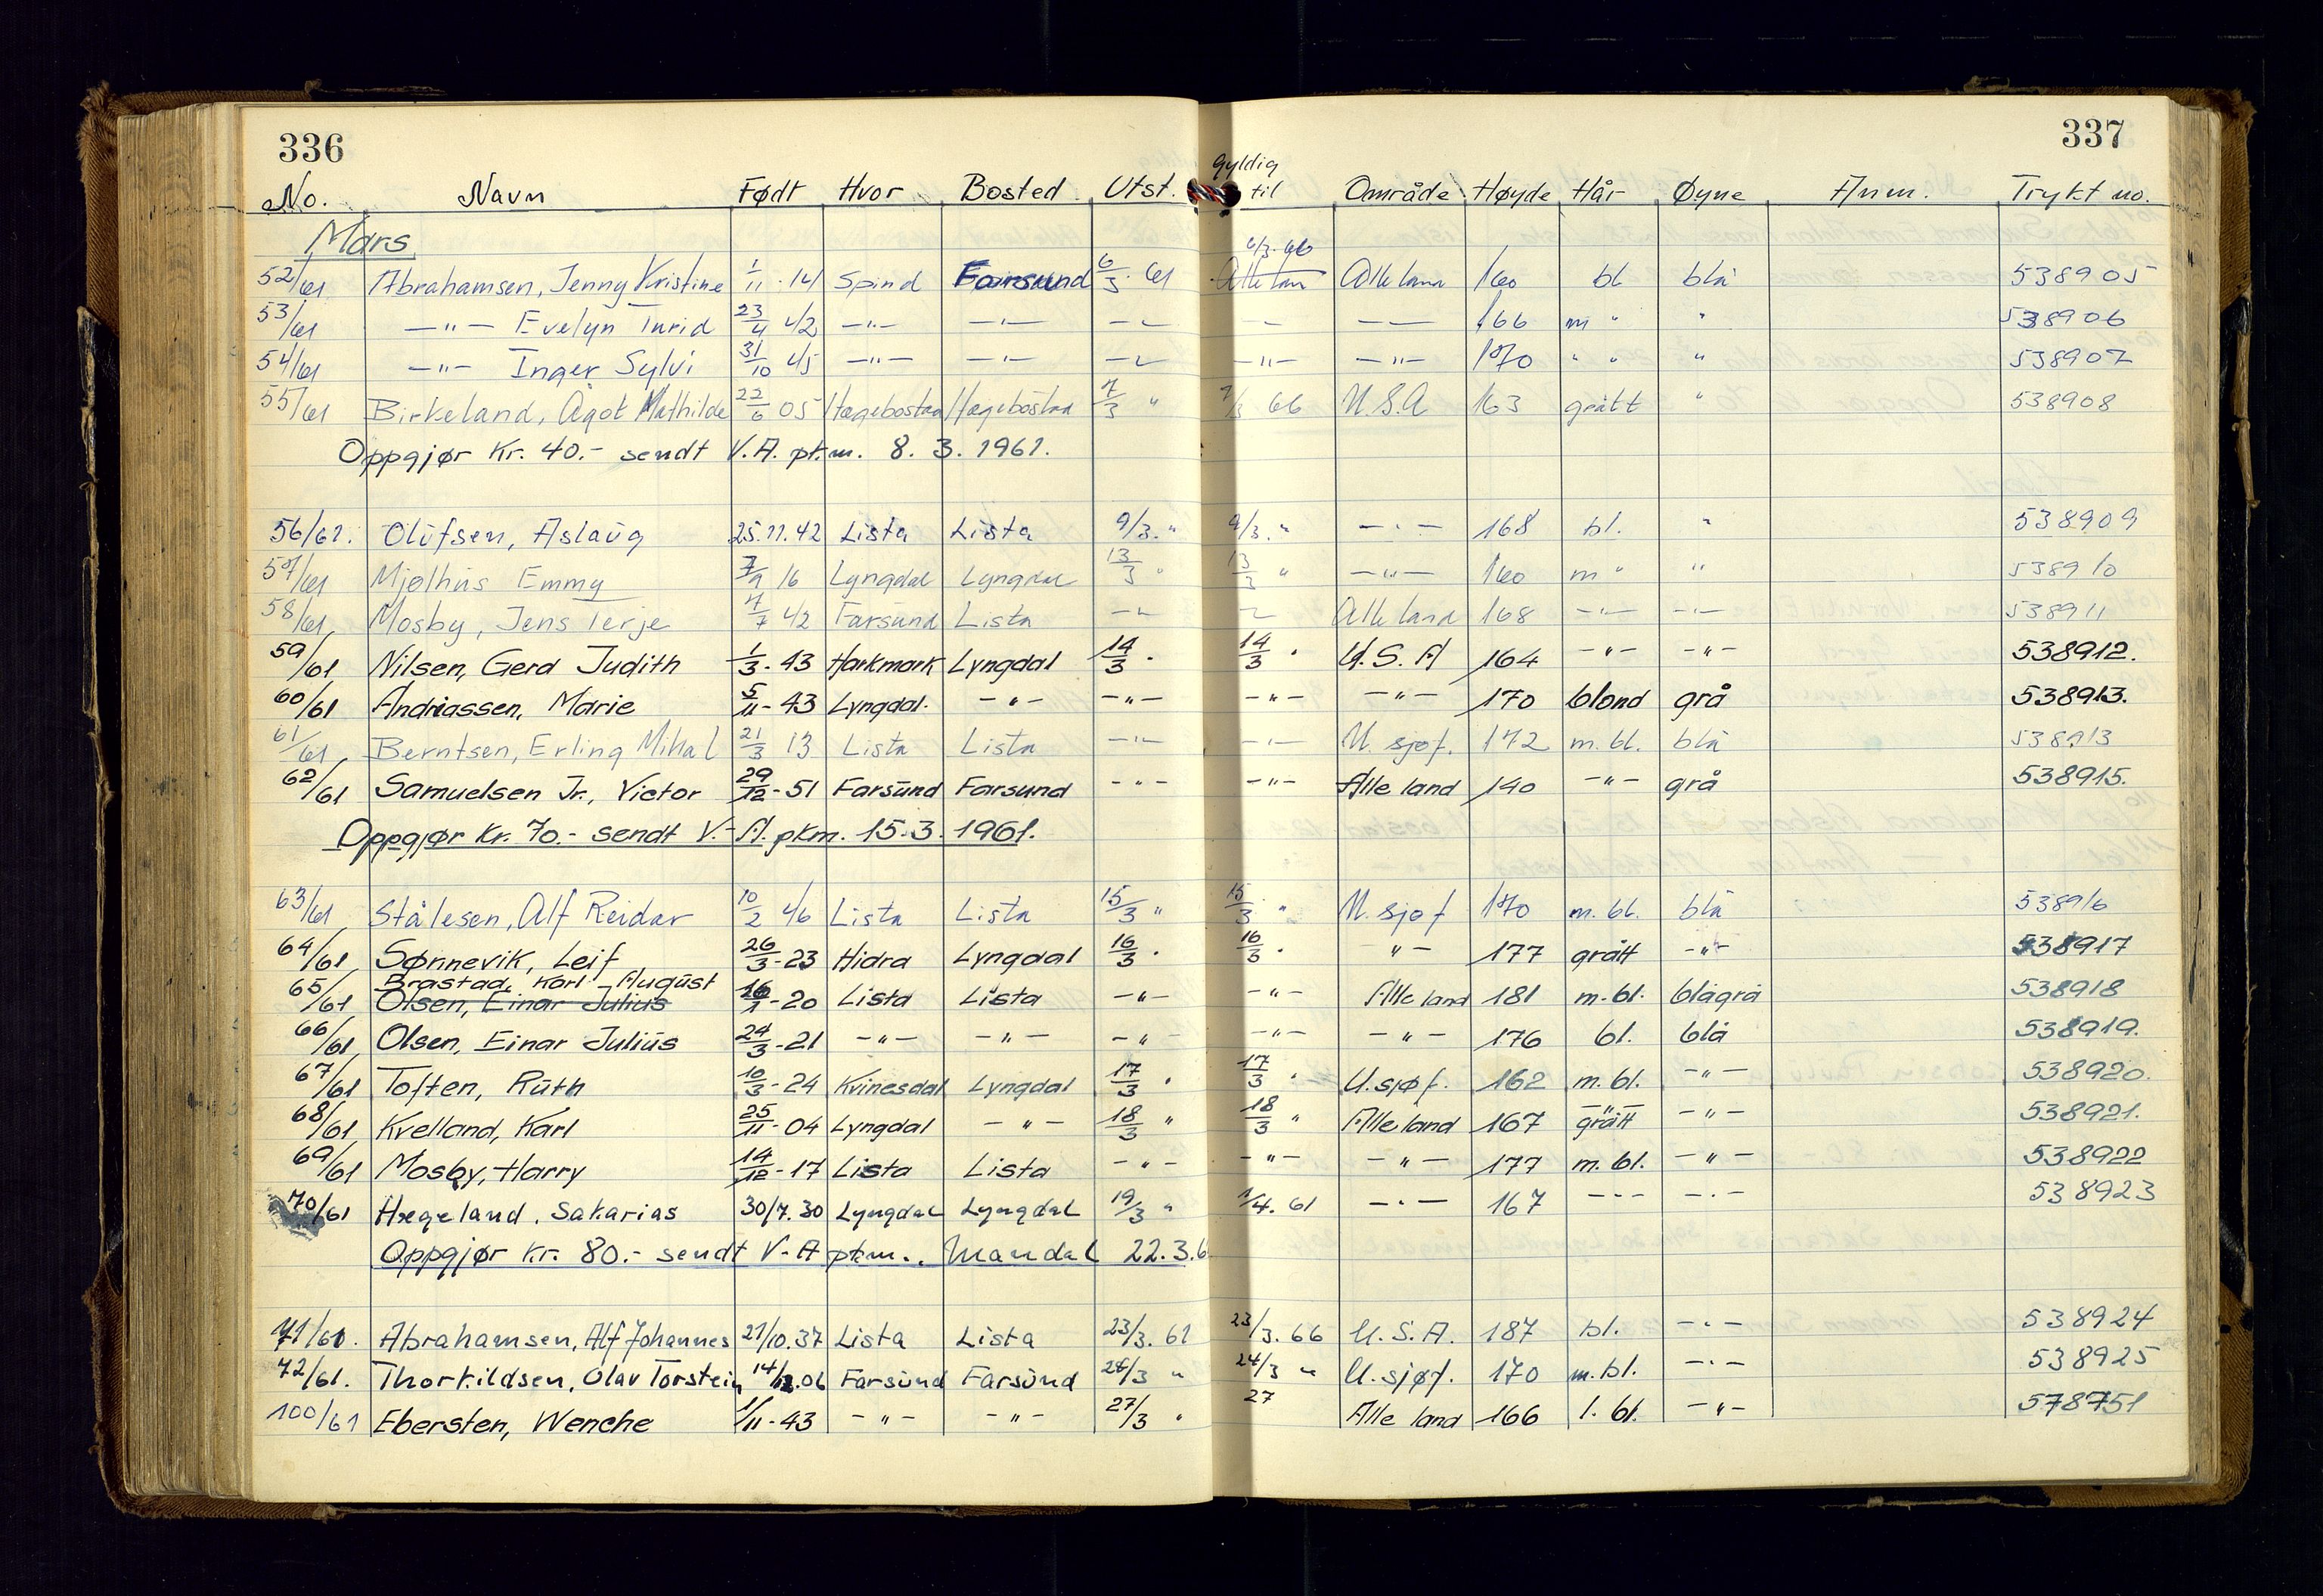 336
337
No. Navn Født Hvor Bosted Utst. Gyldig til Område Høyde Hår Øyne Anm. Trykt no.
Mars
52/61 Abrahamsen, Jenny Kristine 1/11 - 14 Spind Farsund 6/3. 61 6/3. 66 Alle lan Alle land 160 bl blå 538905
53/61 —"— Evelyn Turid 23/4 42 —"— —"— —"— —"— —"— 166 m " " 538906
54/61 —"— Inger Sylvi 31/10 45 —"— —"— —"— —"— —"— 170 " " " 538907
55/61 Birkeland, Ågot Mathilde 22/6 05 Hægebostad Hægebostad 7/3 " 7/3 66 U.S.A 163 grått " 538908
Oppgjør Kr. 40.- sendt V.A. pkm. 8. 3. 1961.
56/61. Olufsen, Aslaug 25.11.42 Lista Lista 9/3. " 9/3. " —"— 168 bl. " 538909
57/61 Mjølhus Emmy 7/9 16 Lyngdal Lyngdal 13/3 " 13/3 " —"— 160 m " " 538910
58/61 Mosby, Jens Terje 7/7 42 Farsund Lista —"— —"— Alle land 168 —"— —"— 538911
59/61 Nilsen, Gerd Judith 1/3 - 43 Harkmark Lyngdal 14/3 " 14/3 " U.S.A 164 —"— —"— 538912.
60/61 Andriassen, Marie 5/11 - 43 Lyngdal. —"— —"— —"— —"— 170 blond grå 538913.
61/61 Berntsen, Erling Mikal 21/3 13 Lista Lista —"— —"— U. sjøf. 172 m. bl. blå 538913
62/61 Samuelsen Jr., Victor 29/12 - 51 Farsund Farsund —"— —"— Alle land 140 —"— grå 538915.
Oppgjør Kr. 70.- sendt V.-A. pkm. 15.3. 1961.
63/61 Stålesen, Alf Reidar 10/2 46 Lista Lista 15/3 " 15/3 " U. sjøf 170 m. bl. blå 538916
64/61 Sønnevik, Leif 26/3 - 23 Hidra Lyngdal 16/3 " 16/3 " "— 177 grått —"— 538917
65/61 Brastad, Karl August Olsen, Einar Julius 16/1 - 20 Lista Lista —"— —"— Alle land 181 m. bl. blågrå 538918
66/61 Olsen, Einar Julius 24/3 - 21 —"— —"— —"— —"— —"— 176 bl. blå 538919.
67/61 Toften, Ruth 10/3 - 24 Kvinesdal Lyngdal 17/3 " 17/3 " U. sjøf. 162 m. bl. —"— 538920.
68/61 Kvelland, Karl 25/11 - 04 Lyngdal —"— 18/3 " 18/3 " Alle land 167 —"— grått —"— 538921.
69/61 Mosby, Harry 14/12 - 17 Lista Lista —"— —"— —"— 177 m. bl. —"— 538922
70/61 Hægeland, Sakarias 30/7.30 Lyngdal Lyngdal 19/3 " 1/4. 61 —"— 167 —"— —"— 538923
Oppgjør kr. 80.- sendt V-A pkm. Mandal 22.3.6
71/61. Abrahamsen, Alf Johannes 21/10.37 Lista Lista 23/3. 61 23/3. 66 U.S.A. 187 bl. —"— 538924
72/61. Thorkildsen, Olav Torstein 14/12.06 Farsund Farsund 24/3 " 24/3 " U. sjøf. 170 m. bl. —"— 538925
100/61 Ebersten, Wenche 1/11 - 43 —"— —"— 27/3 " 27 Alle land 166 l. bl. —"— 578751